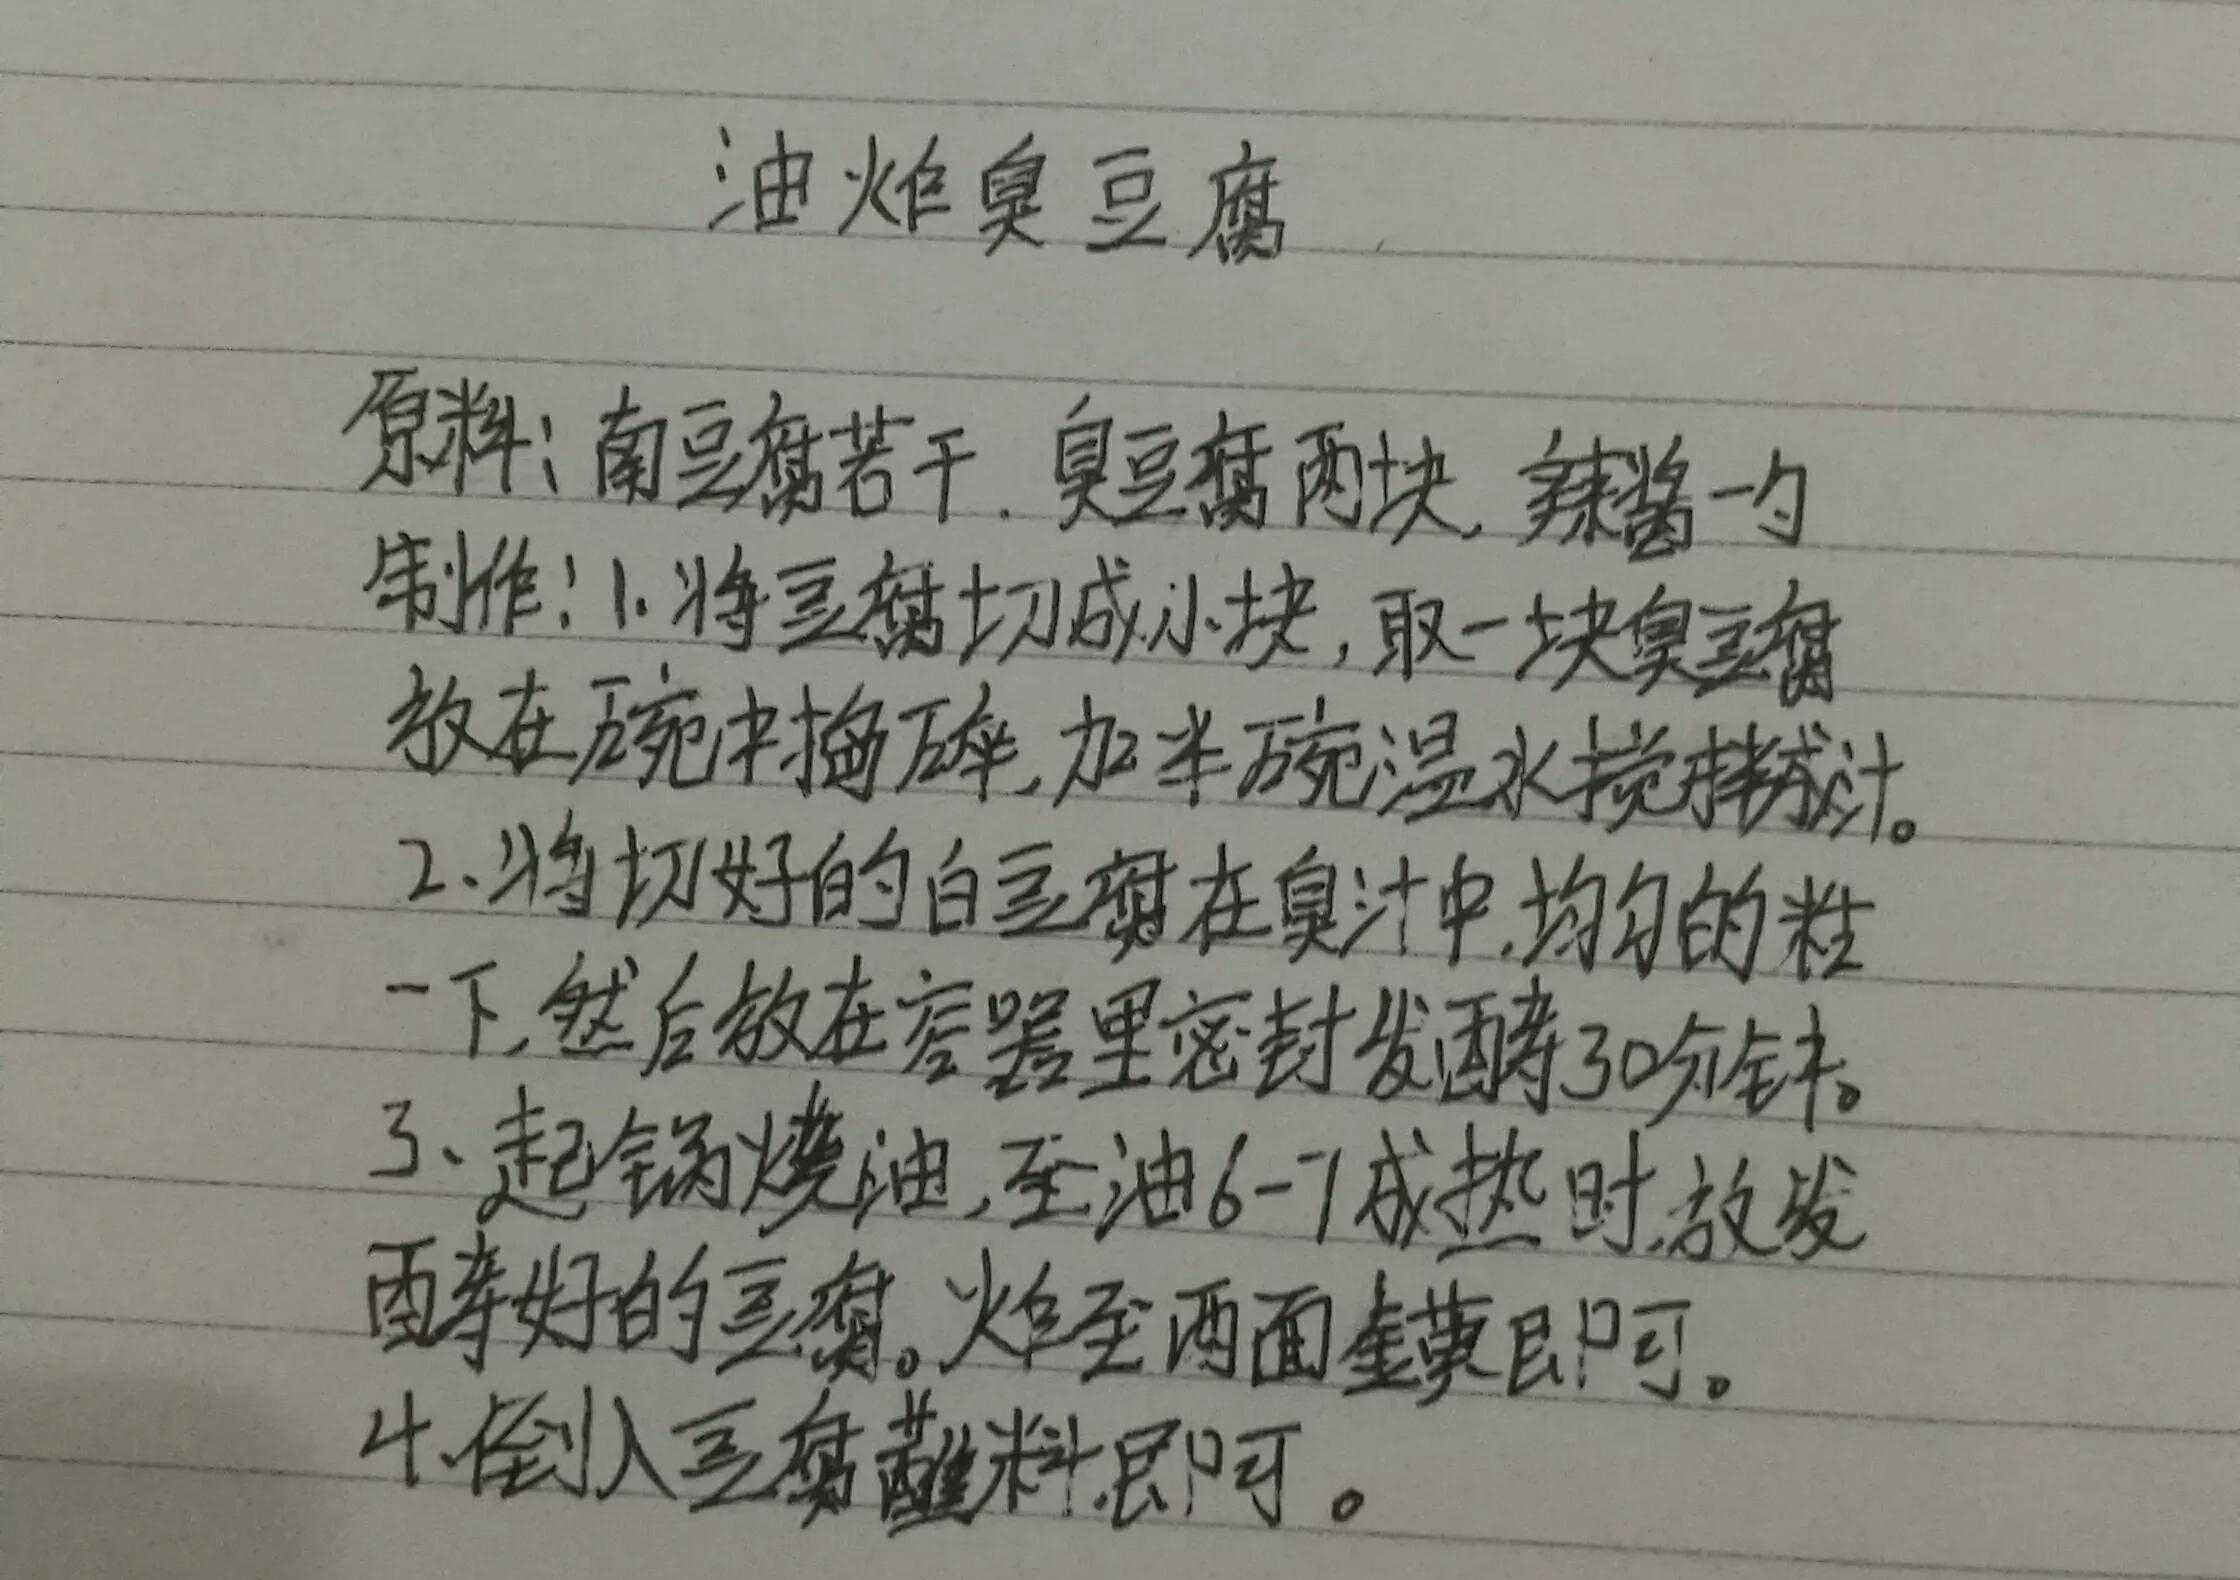 油炸臭豆腐
原料:南豆腐若干.臭豆腐两块,辣酱一勺
制作:1.将豆腐切成小块,取一块臭豆腐
放在碗中捣碎,加半碗温水搅拌成汁。
2、将切好的白豆腐在臭汁中,均匀的粘
一下,然后放在容器里密封发酵30分钟。
3、起锅烧油,至油6-7成热时,放发
酵好的豆腐。炸至两面金黄即可。
4、倒入豆腐蘸料即可。